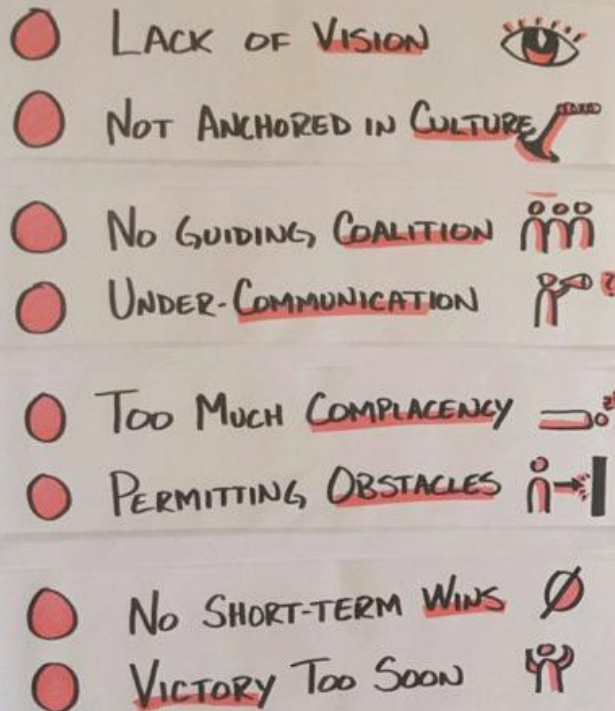 LACK OF VISION
NOT ANCHORED IN CULTURE
NO GUIDING COALITION
UNDER-COMMUNICATION
TOO MUCH COMPLACENCY
PERMITTING OBSTACLES
NO SHORT-TERM WINS
VICTORY TOO SOON